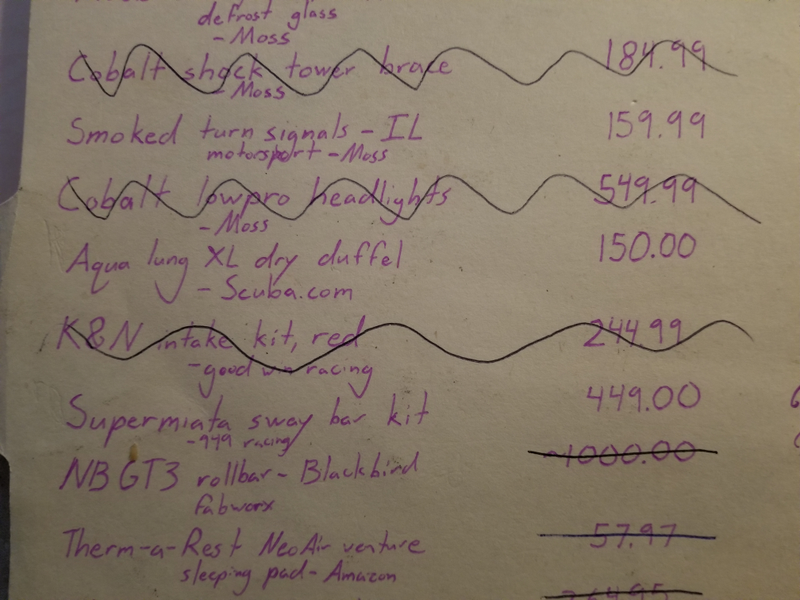 defrost glass
- Moss
Cobalt shock tower brace 184.99
- Moss
Smoked turn signals - IL 159.99
motorsport - Moss
Cobalt lowpro headlights 549.99
- Moss
Aqua lung XL dry duffel 150.00
- Scuba.com
K&N intake kit, red 244.99
- good win racing
Supermiata sway bar kit 449.00
- 949 racing
NB GT3 rollbar - Blackbird ~1000.00
fabworx
Therm-a-Rest NeoAir venture 57.97
sleeping pad - Amazon